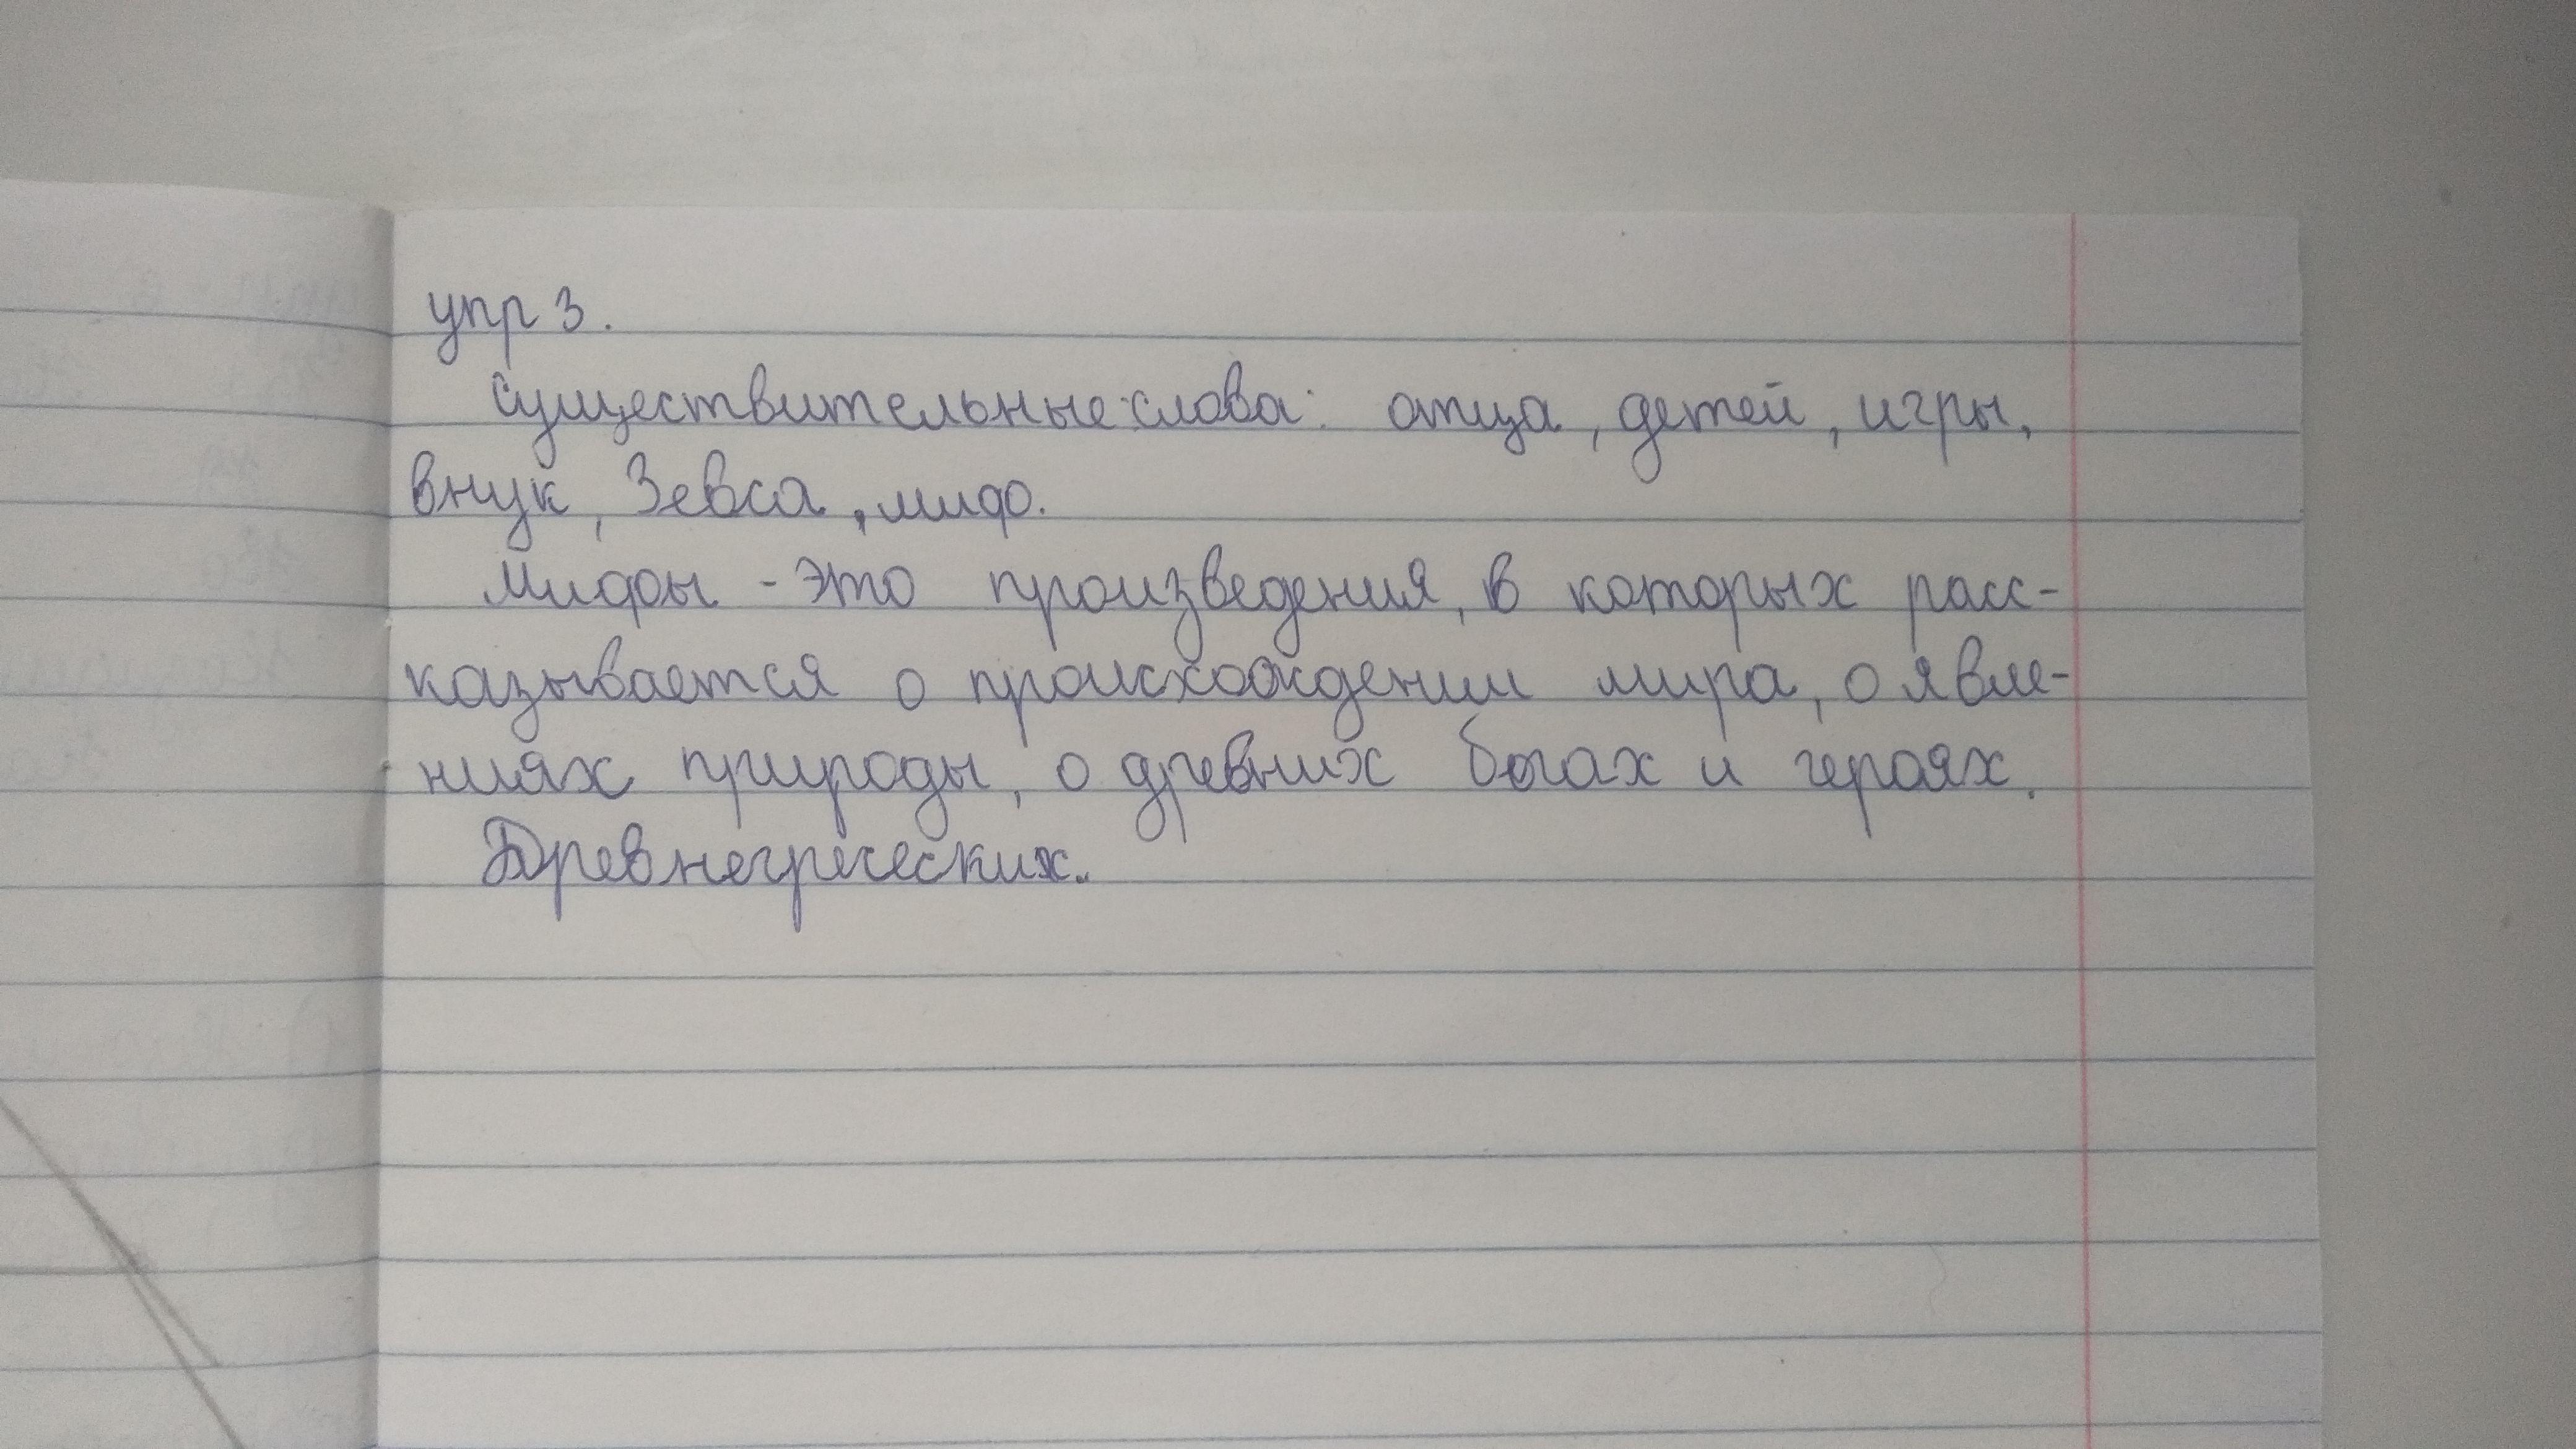 упр 3.
Существительные слова: отца, детей, игры,
внук, Зевса, миф.
Мифы - это произведения, в которых расс-
казывается о происхождении мира, о явле-
ниях природы, о древних богах и героях.
Древнегреческих.